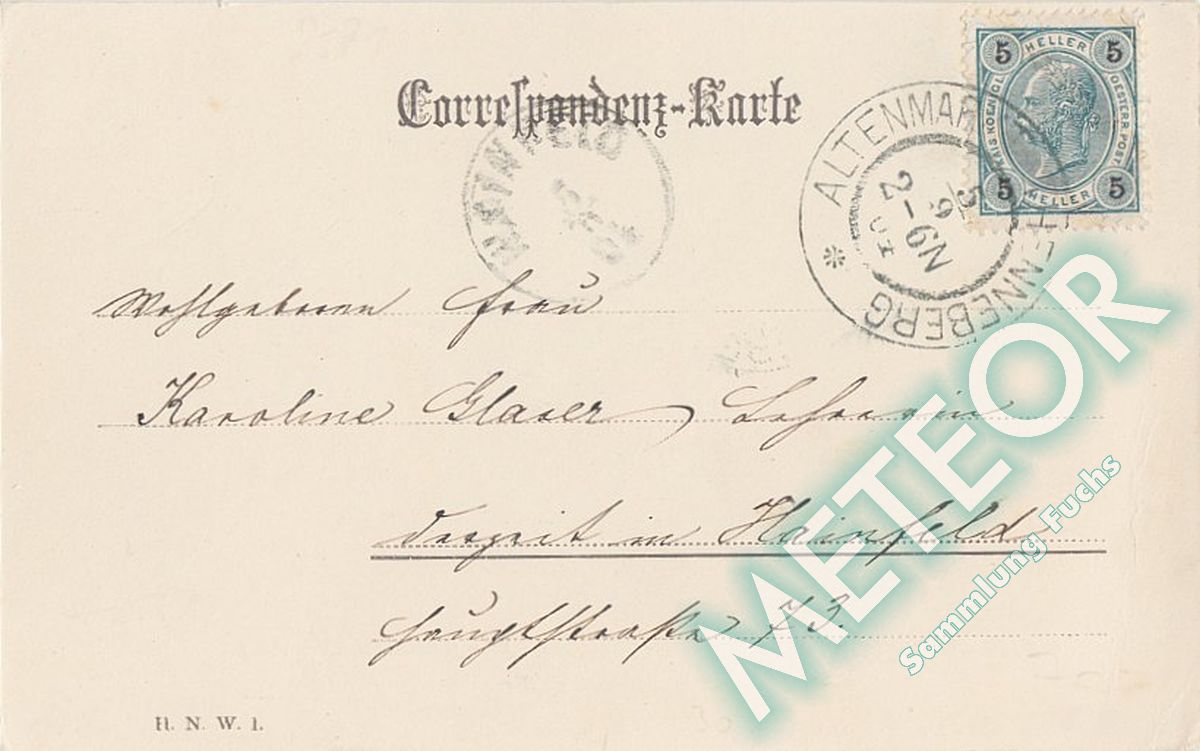 Correspondenz-Karte
5 HELLER 5
KAIS. KOENIGL. OESTERR. POST.
5 HELLER 5
ALTENMAR
THENNEBERG
5
9
2-6N
03
HAINFELD
Wohlgeboren Frau
Karoline Glaser, Lehrerin
derzeit in Hainfeld
Hauptstraße 73.
H. N. W. 1.
METEOR
Sammlung Fuchs